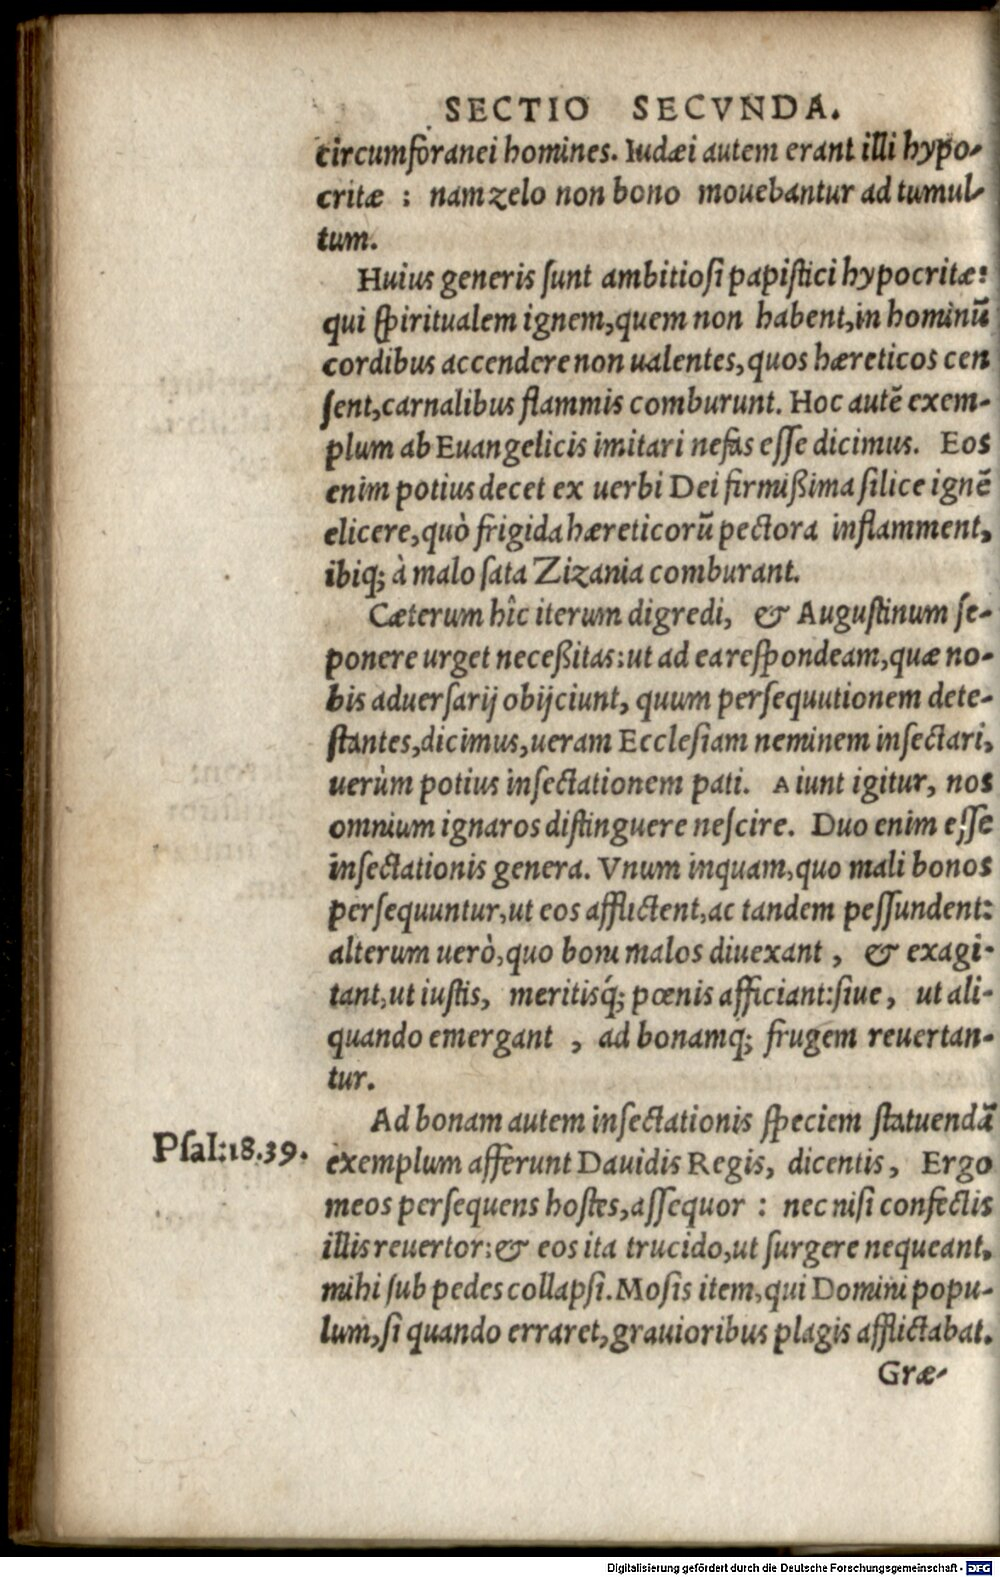 SECTIO SECVNDA.
circumforanei homines. Iudæi autem erant illi hypo-
critæ : nam zelo non bono mouebantur ad tumul-
tum.
Huius generis sunt ambitiosi papistici hypocritæ:
qui spiritualem ignem, quem non habent, in hominũ
cordibus accendere non ualentes, quos hæreticos cen
sent, carnalibus flammis comburunt. Hoc autẽ exem-
plum ab Euangelicis imitari nefas esse dicimus. Eos
enim potius decet ex uerbi Dei firmißima silice ignẽ
elicere, quò frigida hæreticorũ pectora inflamment,
ibiq; à malo sata Zizania comburant.
Cæterum hîc iterum digredi, & Augustinum se-
ponere urget neceßitas: ut ad ea respondeam, quæ no-
bis aduersarij obijciunt, quum persequutionem dete-
stantes, dicimus, ueram Ecclesiam neminem insectari,
uerùm potius insectationem pati. Aiunt igitur, nos
omnium ignaros distinguere nescire. Duo enim esse
insectationis genera. Vnum inquam, quo mali bonos
persequuntur, ut eos afflictent, ac tandem pessundent:
alterum uerò, quo boni malos diuexant, & exagi-
tant, ut iustis, meritisq́; pœnis afficiant: siue, ut ali-
quando emergant, ad bonamq́; frugem reuertan-
tur.
Ad bonam autem insectationis speciem statuendã
Psal:18.39. exemplum afferunt Dauidis Regis, dicentis, Ergo
meos persequens hostes, assequor : nec nisi confectis
illis reuertor: & eos ita trucido, ut surgere nequeant,
mihi sub pedes collapsi. Mosis item, qui Domini popu-
lum, si quando erraret, grauioribus plagis afflictabat.
Græ-
Digitalisierung gefördert durch die Deutsche Forschungsgemeinschaft - DFG